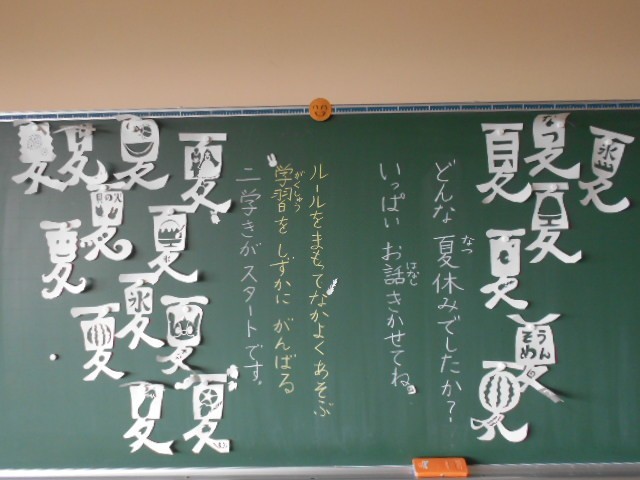 夏
氷
夏
夏
夏
夏
そうめん
夏
夏
なつ
どんな 夏休みでしたか?
はなし
いっぱい お話きかせてね。
ルールをまもてなかよくあそぶ
がくしゅう
学習を しずかに がんばる
二学きが スタートです。
夏
夏
夏
夏
夏
夏
夏
氷
夏
夏
夏
夏
夏